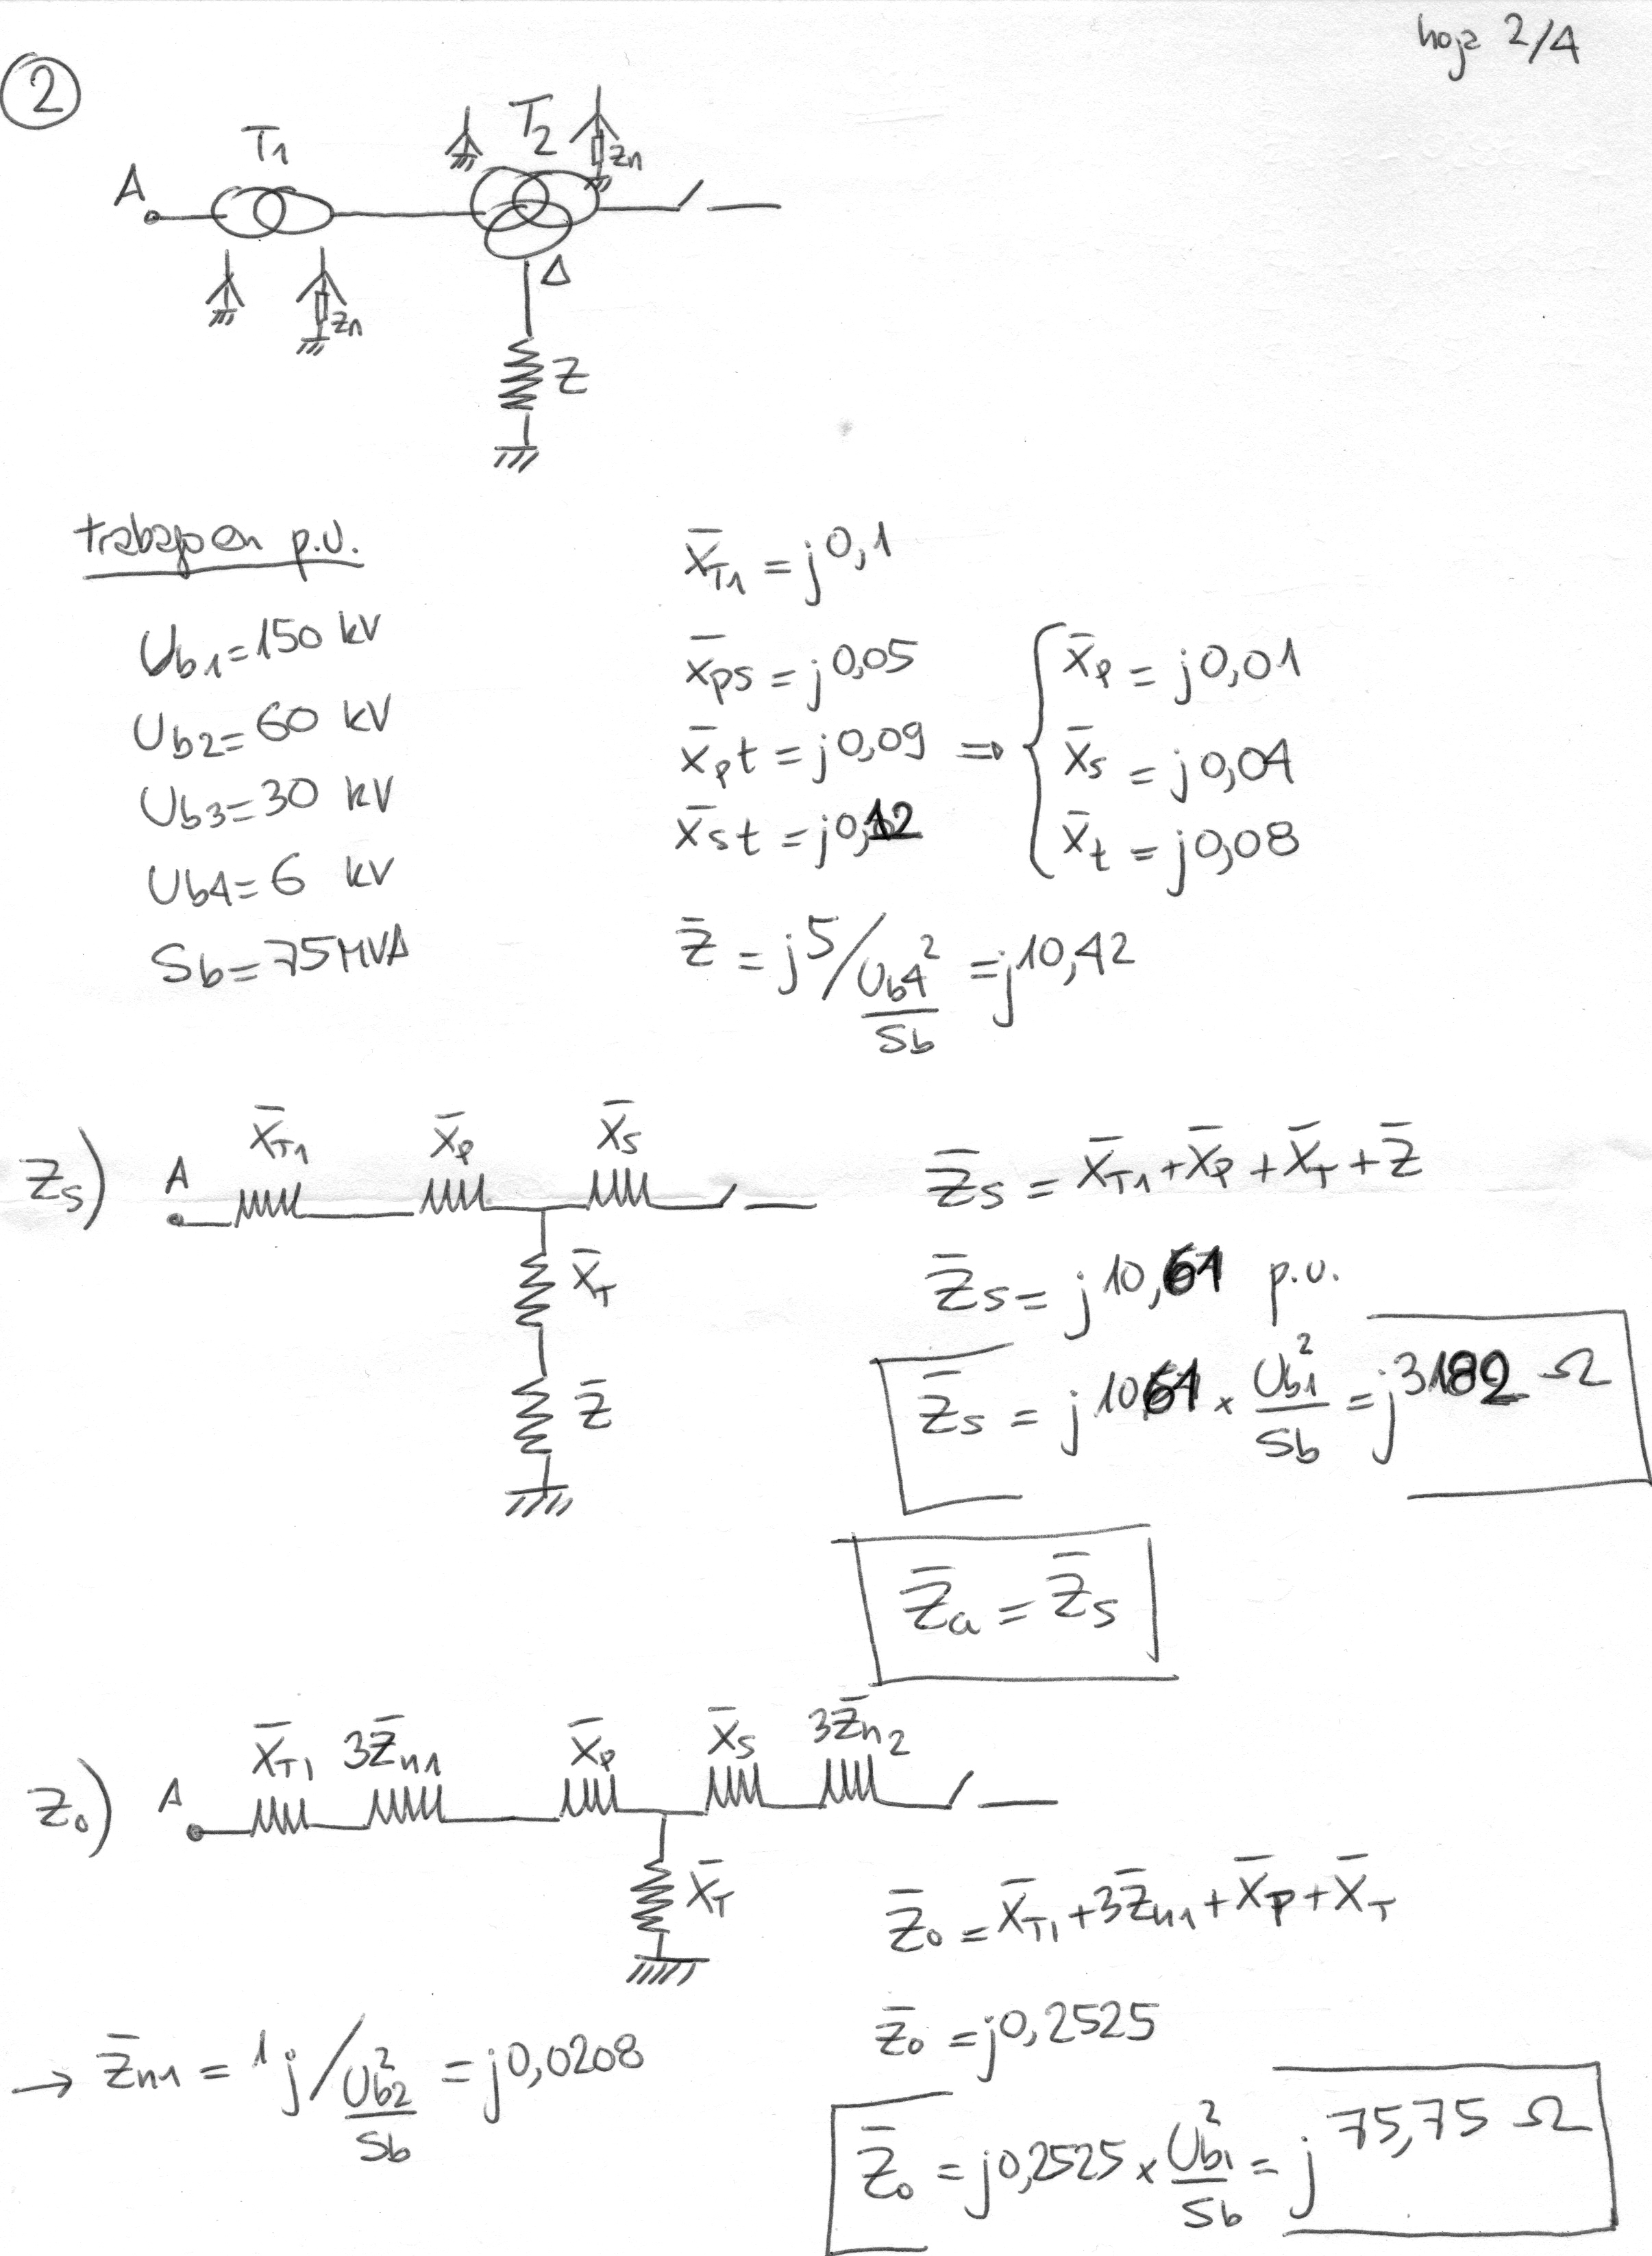 hoja 2/4
2
A T1 T2 Zn
Zn
Δ
Z
trabajo en p.u.
Ub1=150 kV
Ub2=60 kV
Ub3=30 kV
Ub4=6 kV
Sb=75MVA
X̄T1 = j0,1
X̄ps = j0,05
X̄pt = j0,09 ⇒
X̄st = j0,12
X̄p = j0,01
X̄s = j0,04
X̄t = j0,08
Z̄ = j5/(Ub4²/Sb) = j10,42
Zs) A X̄T1 X̄p X̄s
X̄T
Z̄
Z̄s = X̄T1+X̄p+X̄T+Z̄
Z̄s = j10,61 p.u.
Z̄s = j1061 × Ub1²/Sb = j3182 Ω
Z̄a = Z̄s
Zo) A X̄T1 3Z̄n1 X̄p X̄s 3Z̄n2
X̄T
Z̄o = X̄T1+3Z̄n1+X̄p+X̄T
Z̄o = j0,2525
→ Z̄n1 = 1j/(Ub2²/Sb) = j0,0208
Z̄o = j0,2525 × Ub1²/Sb = j75,75 Ω